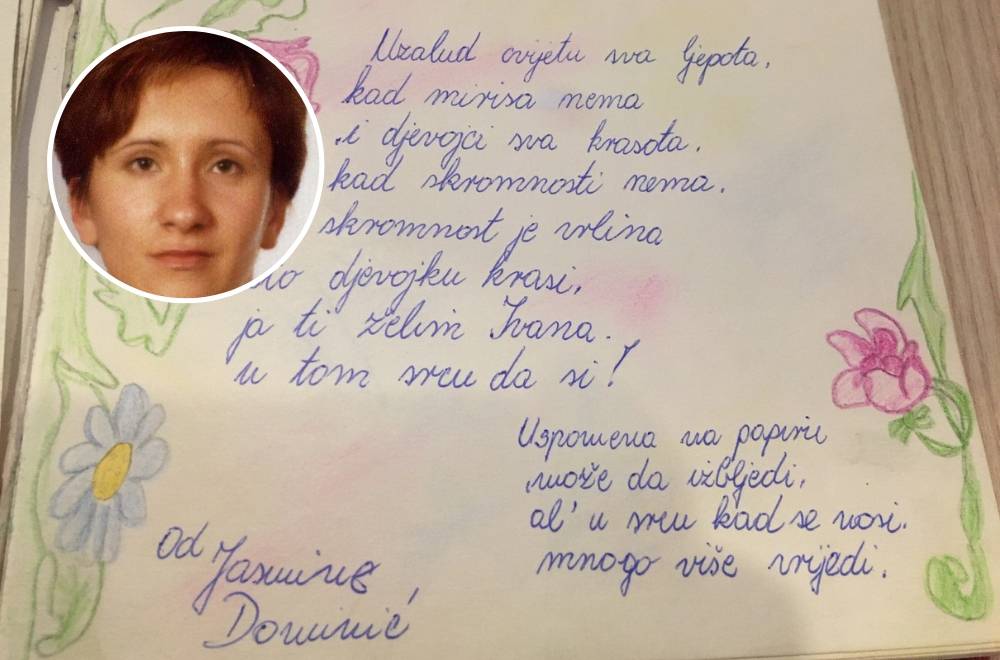 Uzalud cvijetu sva ljepota,
kad mirisa nema
i djevojci sva krasota.
kad skromnosti nema.
skromnost je vrlina
djevojku krasi,
ja ti želim Ivana.
u tom srcu da si!
Uspomena na papiru
može da izbljedi,
al' u srcu kad se nosi.
mnogo više vrijedi.
Od Jasmine
Dominić